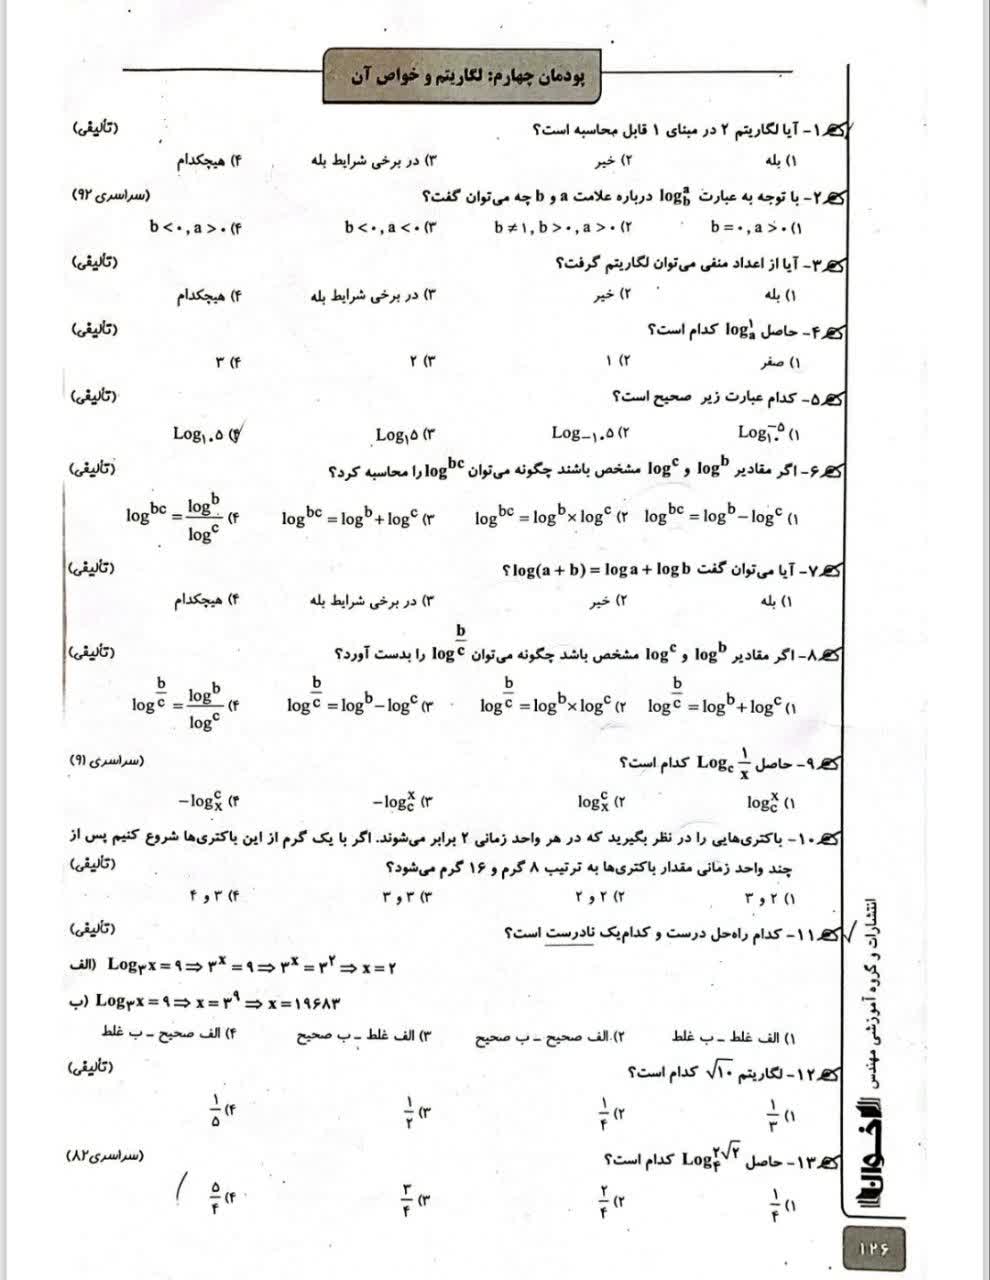 پودمان چهارم: لگاریتم و خواص آن
۱- آیا لگاریتم ۲ در مبنای ۱ قابل محاسبه است؟ (تألیفی)
۱) بله ۲) خیر ۳) در برخی شرایط بله ۴) هیچکدام
۲- با توجه به عبارت log_b^a درباره علامت a و b چه می‌توان گفت؟ (سراسری ۹۲)
۱) b = ۰, a > ۰ ۲) b ≠ ۱, b > ۰, a > ۰ ۳) b < ۰, a < ۰ ۴) b < ۰, a > ۰
۳- آیا از اعداد منفی می‌توان لگاریتم گرفت؟ (تألیفی)
۱) بله ۲) خیر ۳) در برخی شرایط بله ۴) هیچکدام
۴- حاصل log_a^۱ کدام است؟ (تألیفی)
۱) صفر ۲) ۱ ۳) ۲ ۴) ۳
۵- کدام عبارت زیر صحیح است؟ (تألیفی)
۱) Log_۱۰^-۵ ۲) Log_-۱۰ ۵ ۳) Log_۱ ۵ ۴) Log_۱۰ ۵
۶- اگر مقادیر log^b و log^c مشخص باشند چگونه می‌توان log^bc را محاسبه کرد؟ (تألیفی)
۱) log^bc = log^b − log^c ۲) log^bc = log^b × log^c ۳) log^bc = log^b + log^c ۴) log^bc = log^b / log^c
۷- آیا می‌توان گفت log(a + b) = log a + log b؟ (تألیفی)
۱) بله ۲) خیر ۳) در برخی شرایط بله ۴) هیچکدام
۸- اگر مقادیر log^b و log^c مشخص باشد چگونه می‌توان log^(b/c) را بدست آورد؟ (تألیفی)
۱) log^(b/c) = log^b + log^c ۲) log^(b/c) = log^b × log^c ۳) log^(b/c) = log^b − log^c ۴) log^(b/c) = log^b / log^c
۹- حاصل Log_c ۱/x کدام است؟ (سراسری ۹۱)
۱) log_c^x ۲) log_x^c ۳) −log_c^x ۴) −log_x^c
۱۰- باکتری‌هایی را در نظر بگیرید که در هر واحد زمانی ۲ برابر می‌شوند. اگر با یک گرم از این باکتری‌ها شروع کنیم پس از
چند واحد زمانی مقدار باکتری‌ها به ترتیب ۸ گرم و ۱۶ گرم می‌شود؟ (تألیفی)
۱) ۲ و ۳ ۲) ۲ و ۲ ۳) ۳ و ۳ ۴) ۳ و ۴
۱۱- کدام راه‌حل درست و کدام‌یک نادرست است؟ (تألیفی)
الف) Log_۳ x = ۹ ⇒ ۳^x = ۹ ⇒ ۳^x = ۳^۲ ⇒ x = ۲
ب) Log_۳ x = ۹ ⇒ x = ۳^۹ ⇒ x = ۱۹۶۸۳
۱) الف غلط ـ ب غلط ۲) الف صحیح ـ ب صحیح ۳) الف غلط ـ ب صحیح ۴) الف صحیح ـ ب غلط
۱۲- لگاریتم √۱۰ کدام است؟ (تألیفی)
۱) ۱/۳ ۲) ۱/۴ ۳) ۱/۲ ۴) ۱/۵
۱۳- حاصل Log_۴^۲√۲ کدام است؟ (سراسری ۸۲)
۱) ۱/۴ ۲) ۲/۴ ۳) ۳/۴ ۴) ۵/۴
انتشارات و گروه آموزشی مهندس
اخوان
۱۲۶